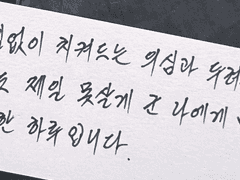 없이 치켜드는 의심과 두려
제일 못살게 군 나에게
하루입니다.